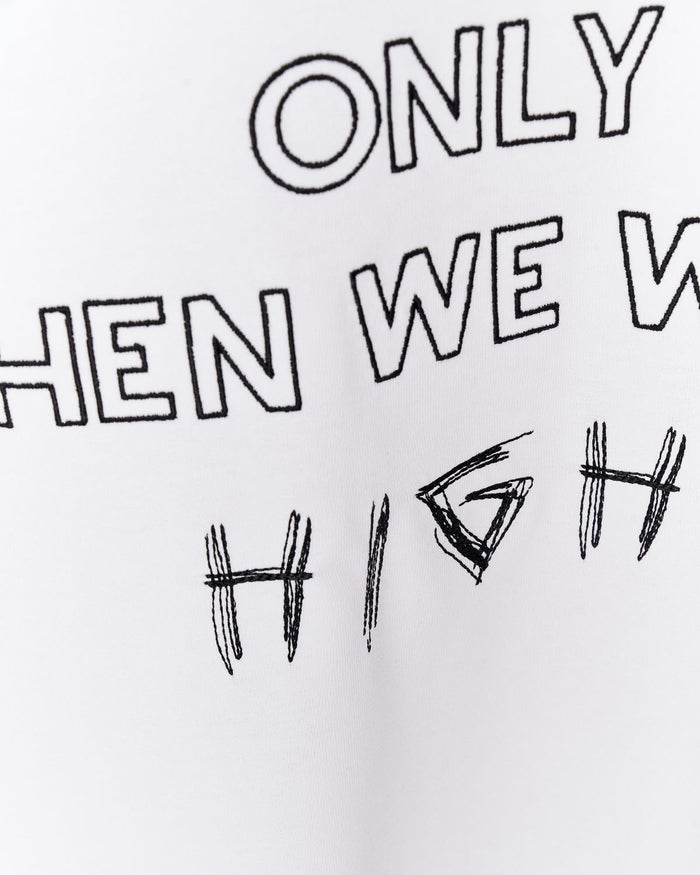 ONLY
HEN WE W
HIGH